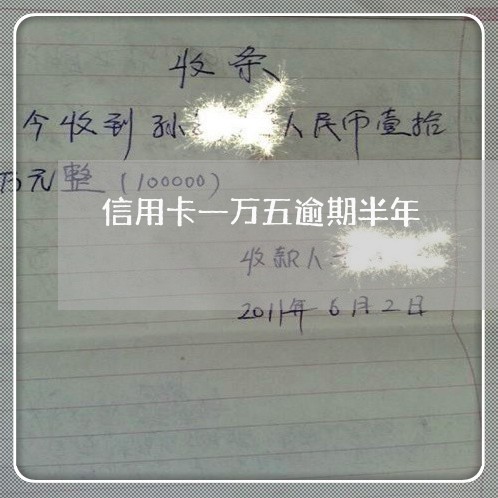 收条
今收到孙 人民币壹拾
万元整（100000）
信用卡一万五逾期半年
收款人
2011年6月2日